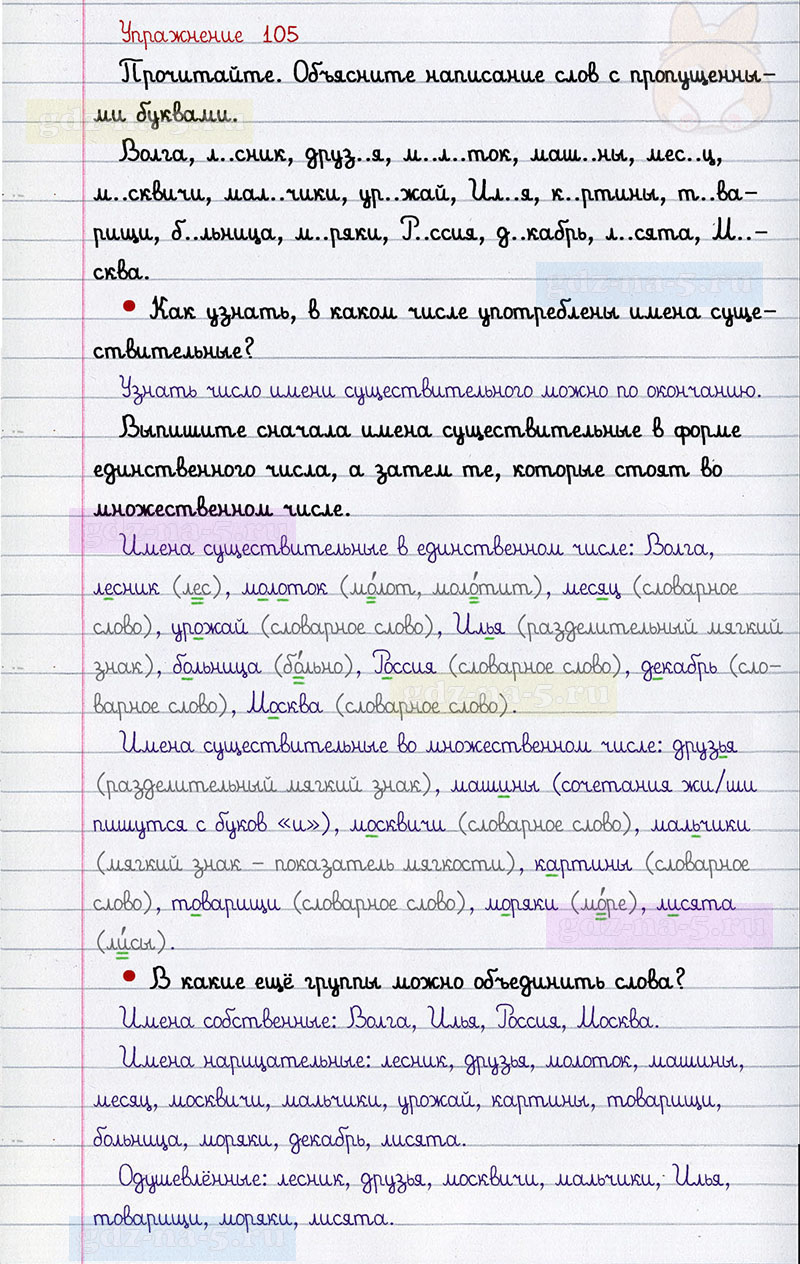 Упражнение 105
Прочитайте. Объясните написание слов с пропущенны-
ми буквами.
Волга, л..сник, друз..я, м..л..ток, маш..ны, мес..ц,
м..сквичи, мал..чики, ур..жай, Ил..я, к..ртины, т..ва-
рищи, б..льница, м..ряки, Р..ссия, д..кабрь, л..сята, М..-
сква.
• Как узнать, в каком числе употреблены имена суще-
ствительные?
Узнать число имени существительного можно по окончанию.
Выпишите сначала имена существительные в форме
единственного числа, а затем те, которые стоят во
множественном числе.
Имена существительные в единственном числе: Волга,
лесник (лес), молоток (мо́лот, моло́тит), месяц (словарное
слово), урожай (словарное слово), Илья (разделительный мягкий
знак), больница (бо́льно), Россия (словарное слово), декабрь (сло-
варное слово), Москва (словарное слово).
Имена существительные во множественном числе: друзья
(разделительный мягкий знак), машины (сочетания жи/ши
пишутся с буков «и»), москвичи (словарное слово), мальчики
(мягкий знак – показатель мягкости), картины (словарное
слово), товарищи (словарное слово), моряки (мо́ре), лисята
(ли́сы).
• В какие ещё группы можно объединить слова?
Имена собственные: Волга, Илья, Россия, Москва.
Имена нарицательные: лесник, друзья, молоток, машины,
месяц, москвичи, мальчики, урожай, картины, товарищи,
больница, моряки, декабрь, лисята.
Одушевлённые: лесник, друзья, москвичи, мальчики, Илья,
товарищи, моряки, лисята.
gdz-na-5.ru
gdz-na-5.ru
gdz-na-5.ru
gdz-na-5.ru
gdz-na-5.ru
gdz-na-5.ru